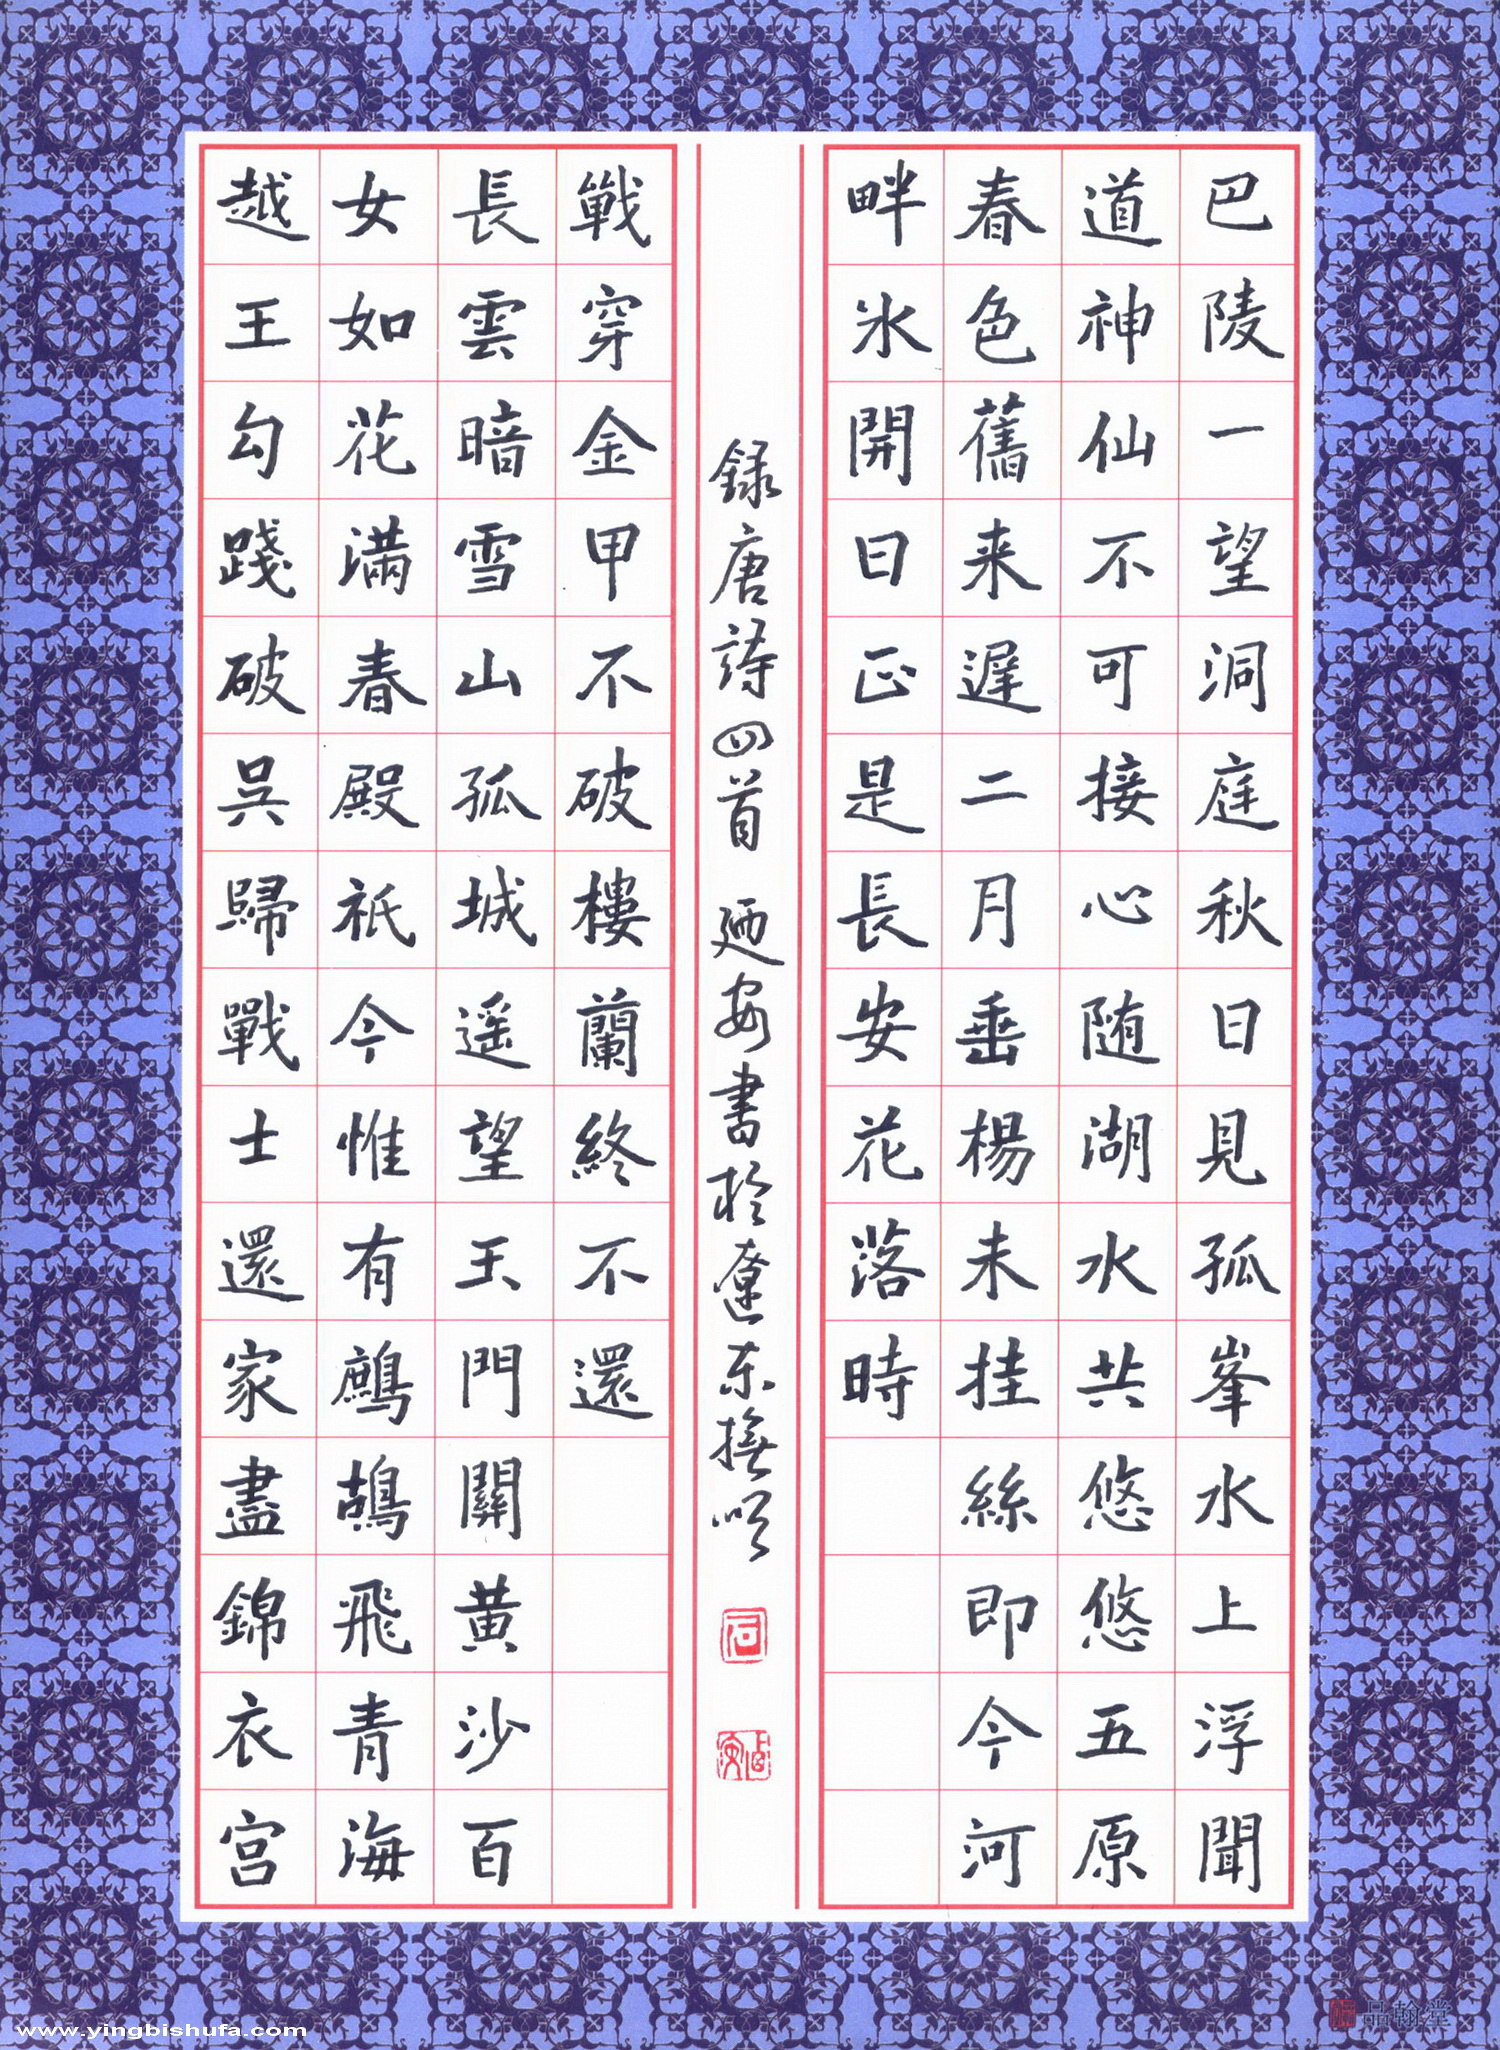 巴陵一望洞庭秋日見孤峯水上浮聞
道神仙不可接心随湖水共悠悠五原
春色舊来遲二月垂楊未挂絲即今河
畔氷開日正是長安花落時
越王勾踐破吳歸戰士還家盡錦衣宫
女如花滿春殿祇今惟有鷓鴣飛青海
長雲暗雪山孤城遥望玉門關黄沙百
戰穿金甲不破樓蘭終不還
録唐詩四首 廼安書於遼东撫順
www.yingbishufa.com
品翰堂